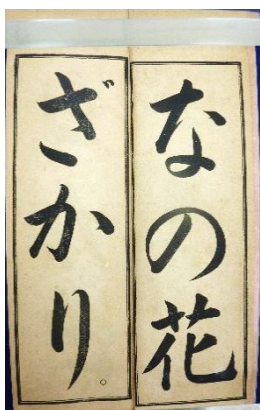 なの花
ざかり。